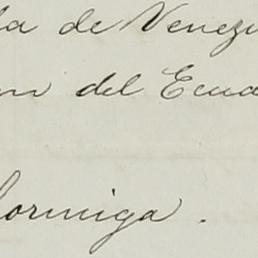 la de Venezu
n del Ecua
hormiga.